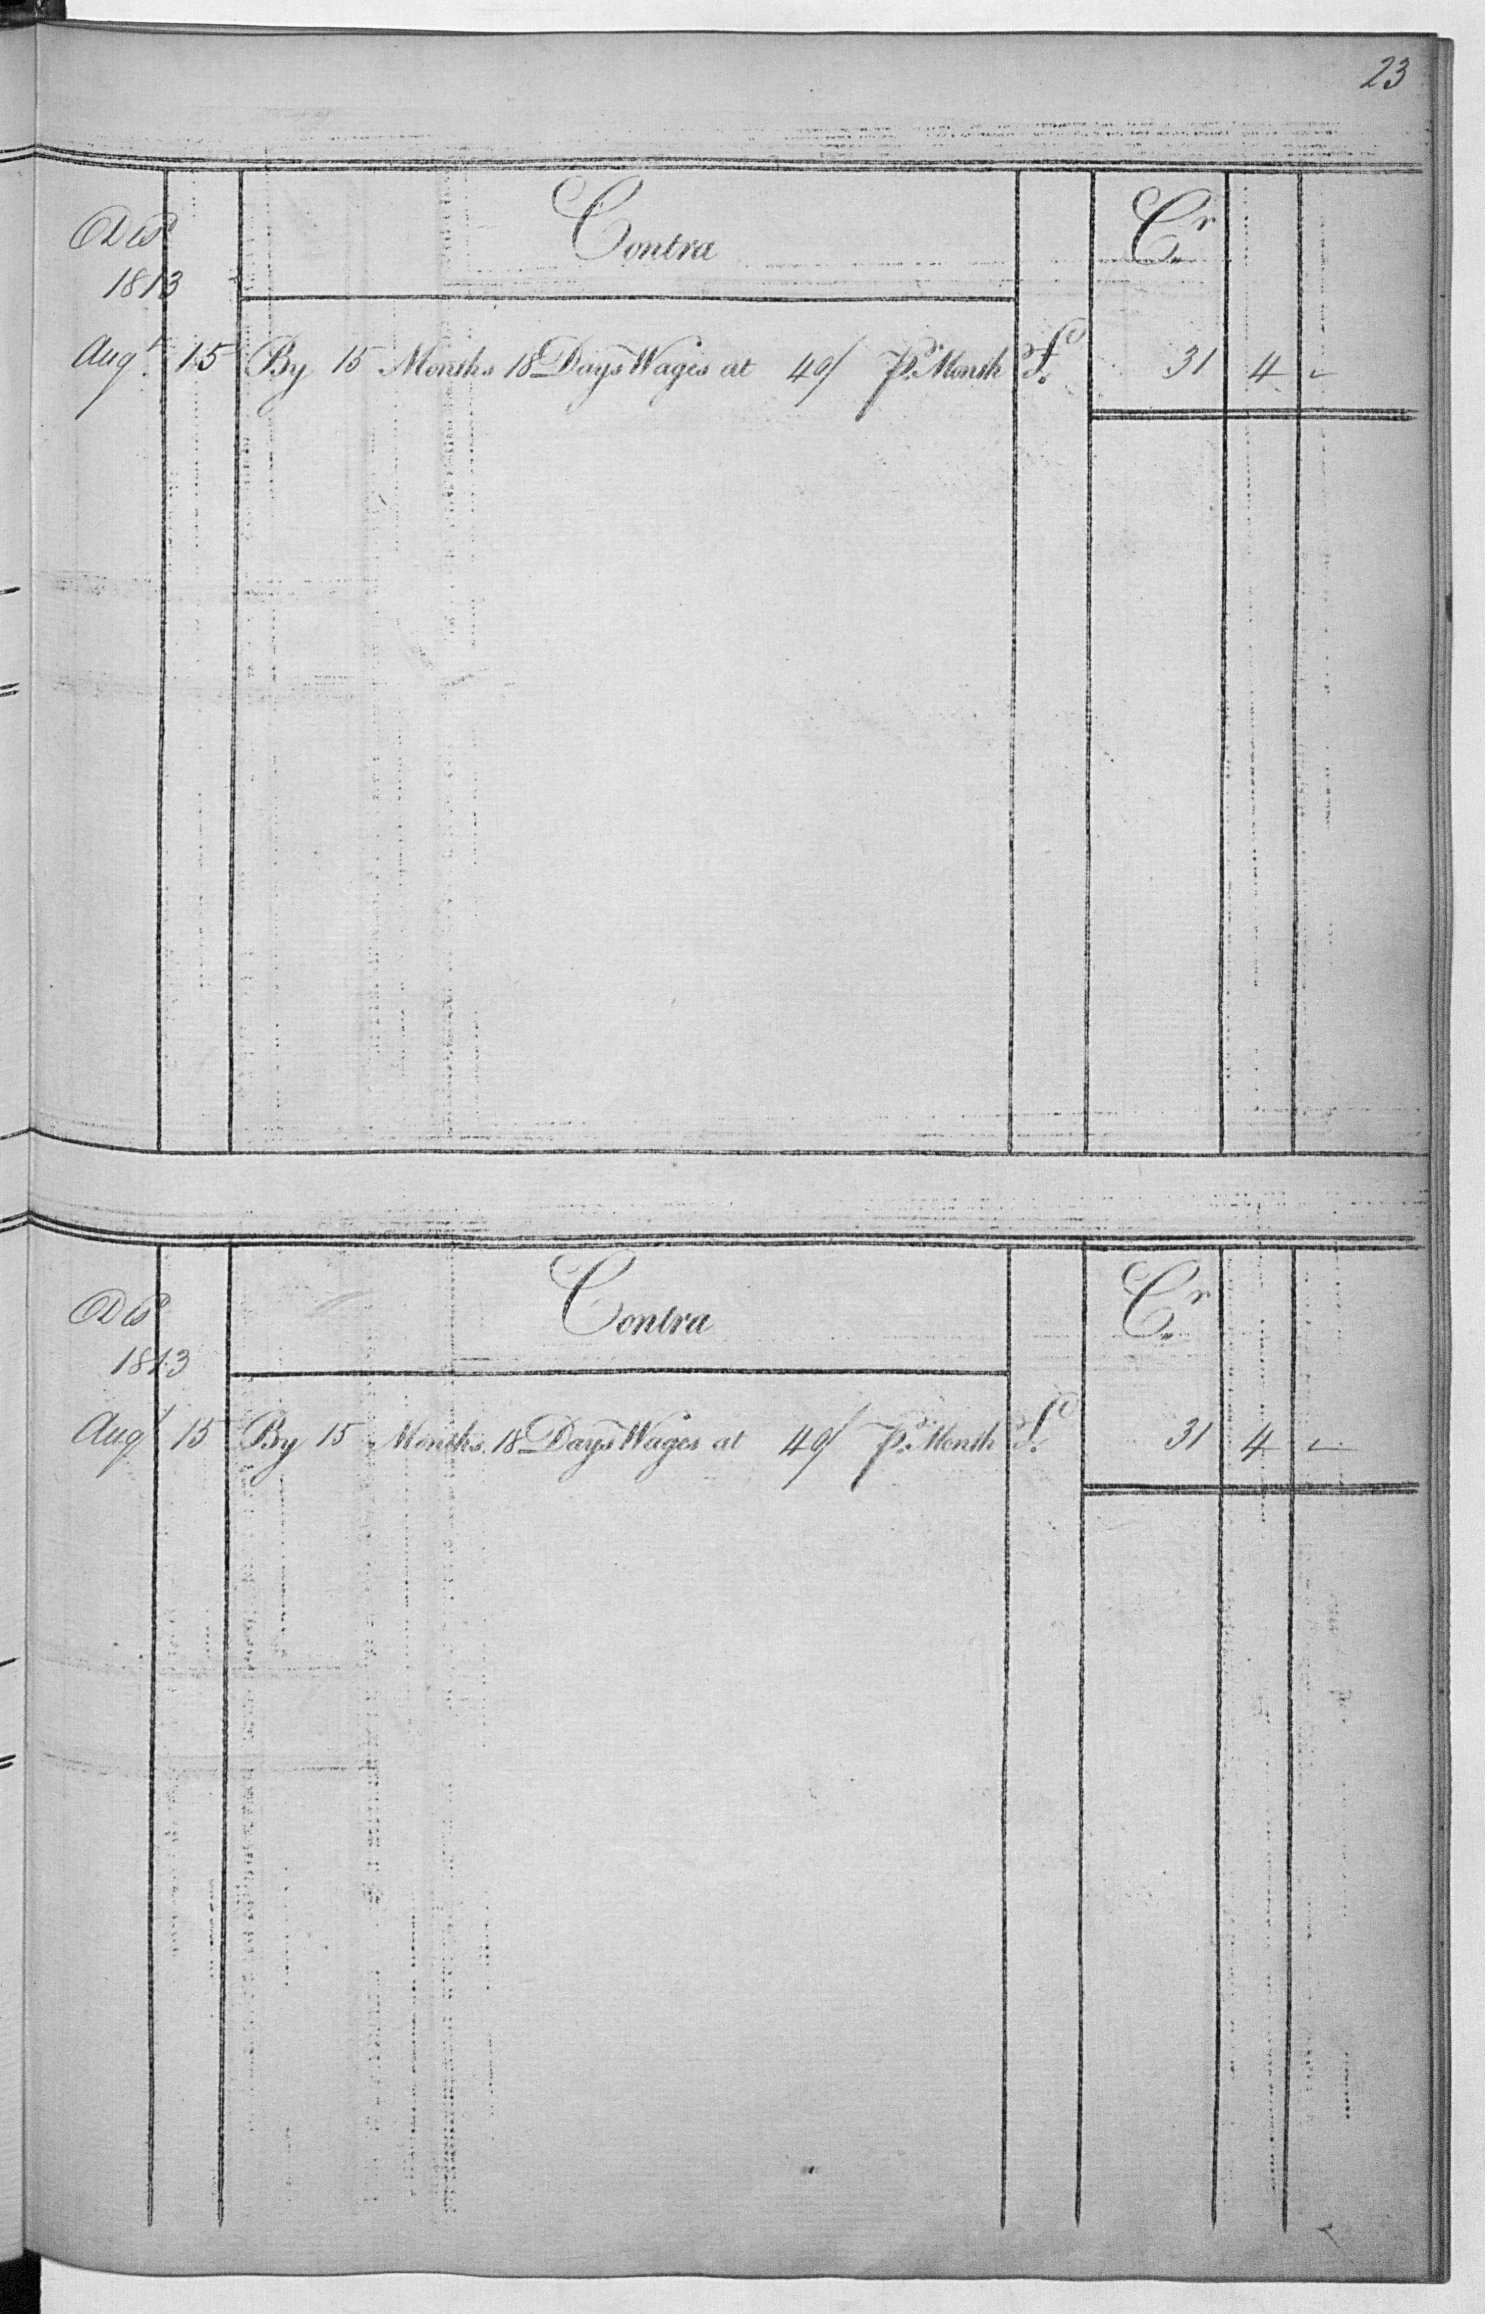 23
Contra Cr
DisD
1813
Augt 15 By 15 Months 18 Days Wages at 40/ Pr. Month £ 31 4 –
Contra Cr
DisD
1813
Augt 15 By 15 Months 18 Days Wages at 40/ Pr. Month £ 31 4 –